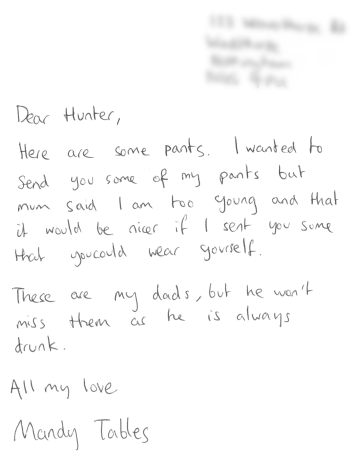 Dear Hunter,
Here are some pants. I wanted to
send you some of my pants but
mum said I am too young and that
it would be nicer if I sent you some
that youcould wear yourself.
These are my dads, but he won't
miss them as he is always
drunk.
All my love
Mandy Tables